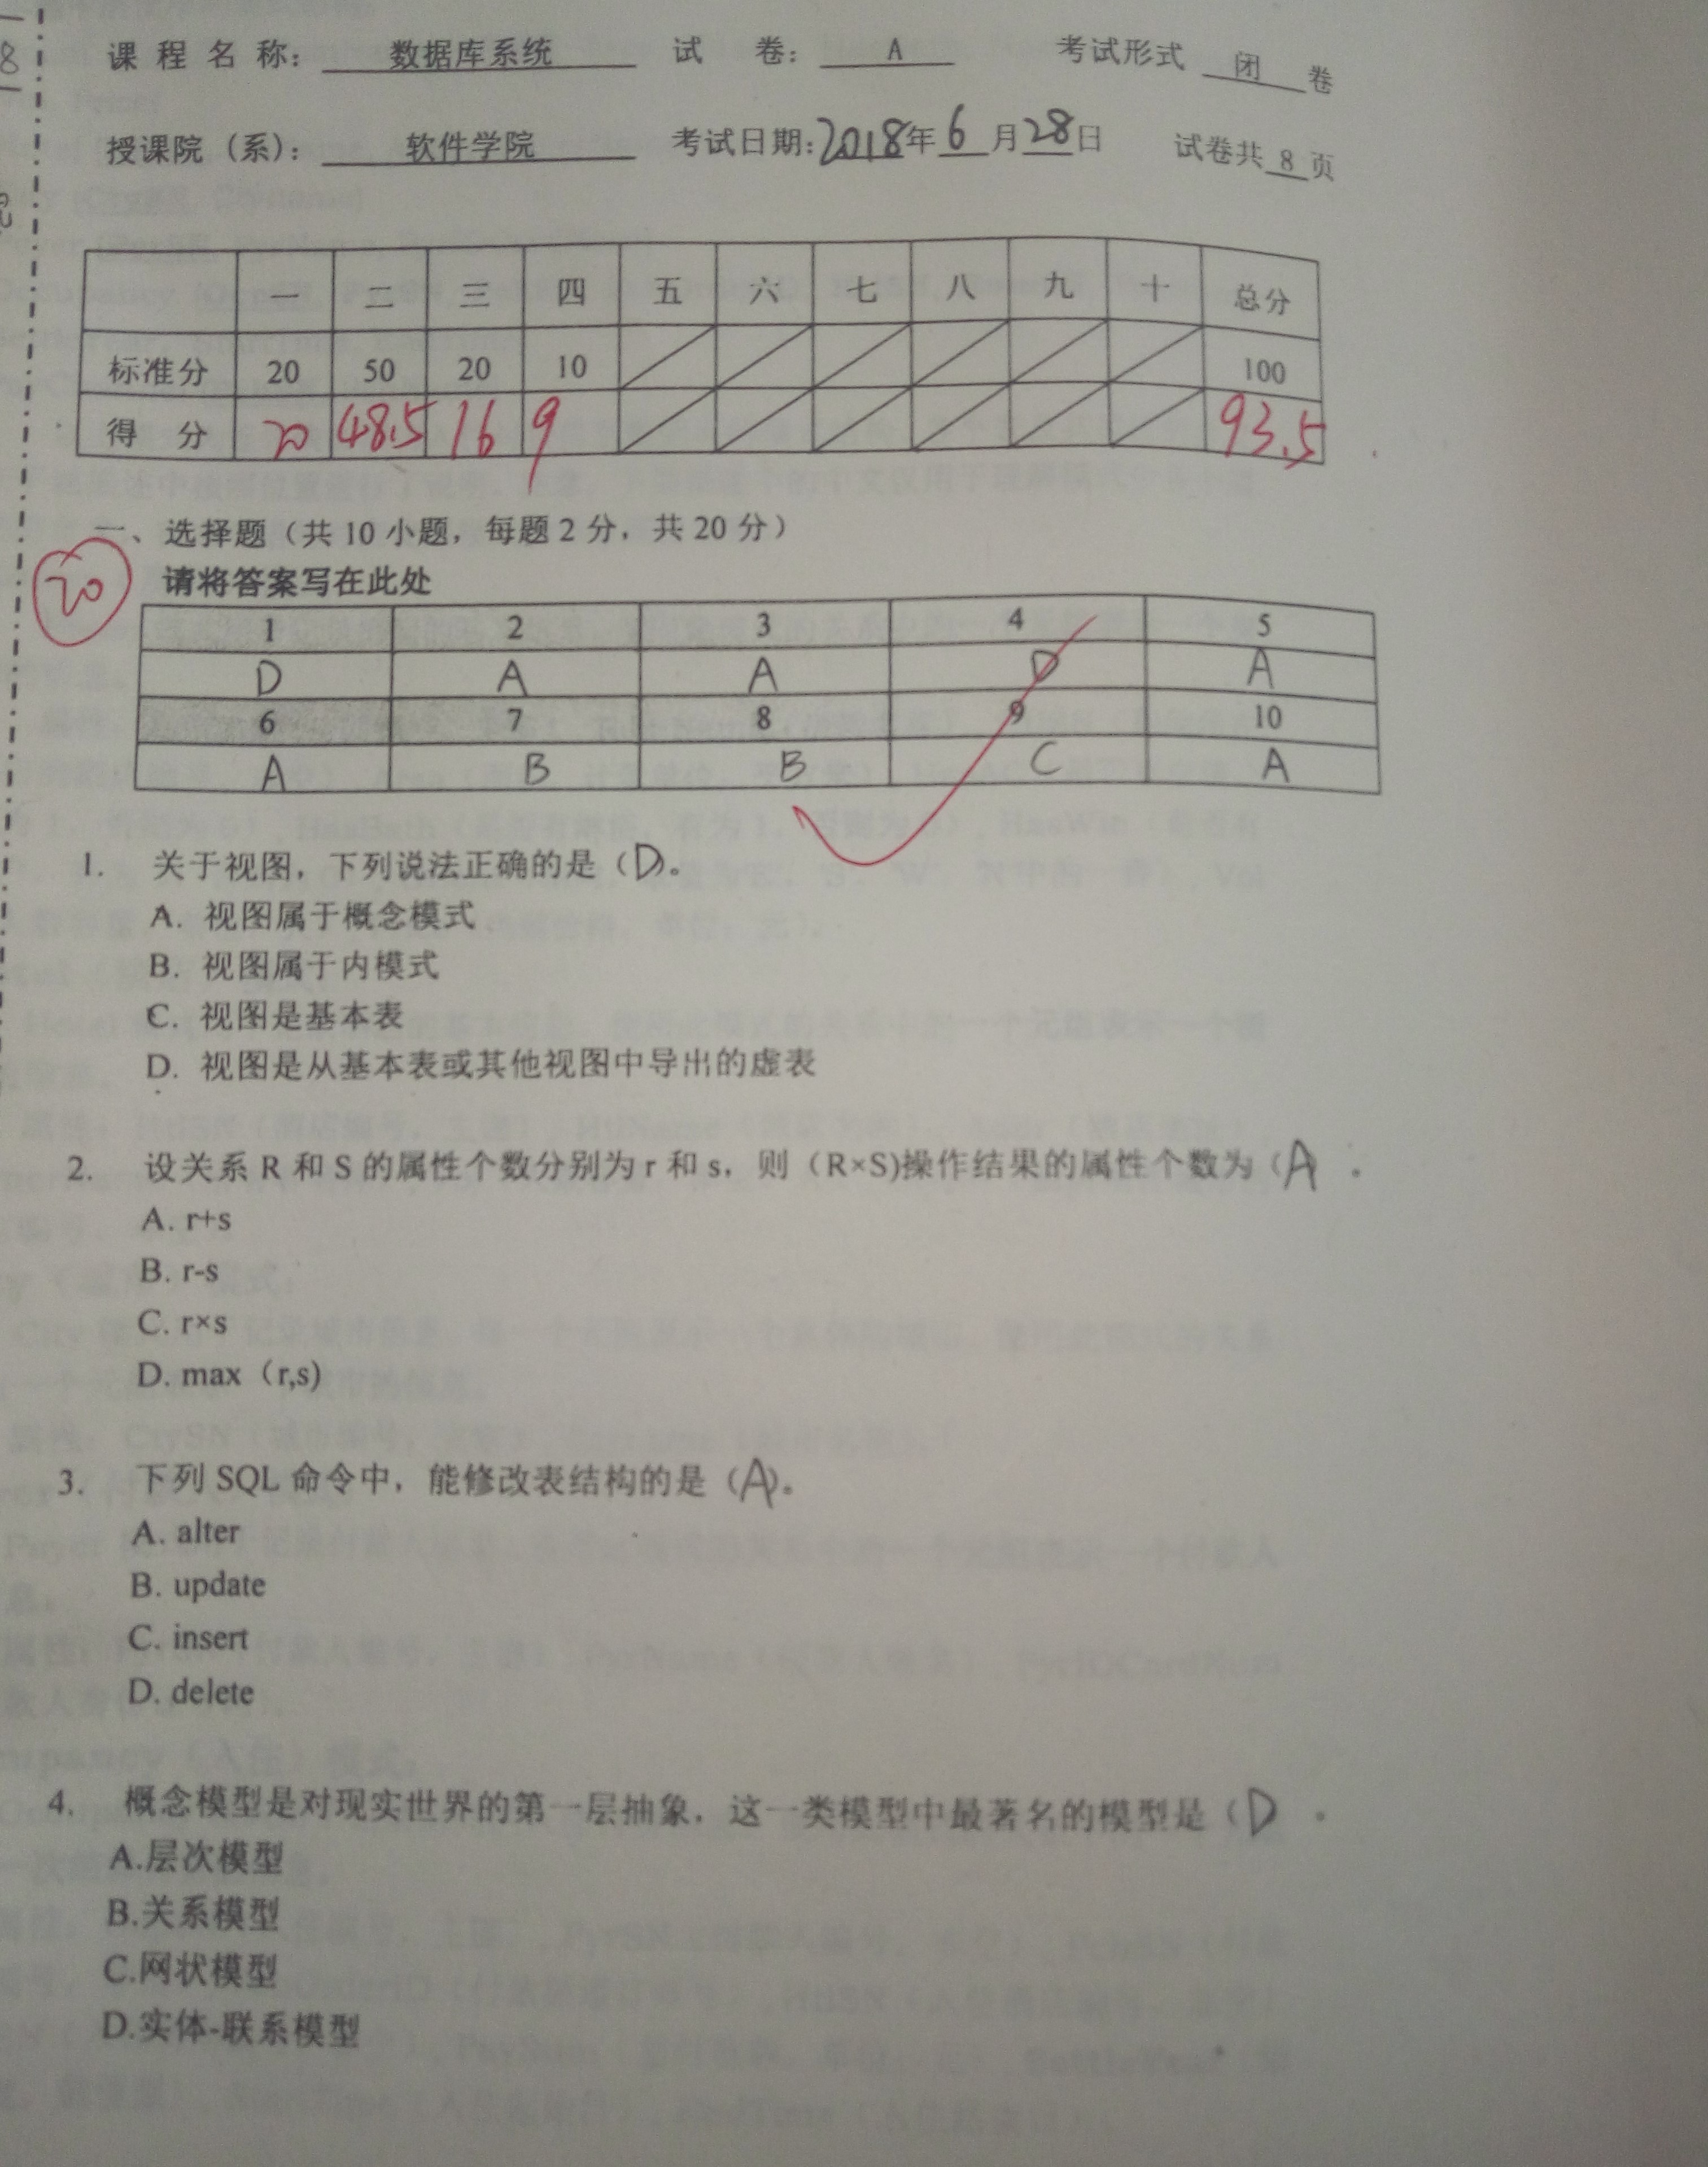 课 程 名 称： 数据库系统 试 卷： A 考试形式 闭 卷
授课院（系）： 软件学院 考试日期：2018年6月28日 试卷共 8 页
一 二 三 四 五 六 七 八 九 十 总分
标准分 20 50 20 10 100
得 分 20 48.5 16 9 93.5
一、选择题（共 10 小题，每题 2 分，共 20 分）
20
请将答案写在此处
1 2 3 4 5
D A A D A
6 7 8 9 10
A B B C A
1. 关于视图，下列说法正确的是（D）。
A. 视图属于概念模式
B. 视图属于内模式
C. 视图是基本表
D. 视图是从基本表或其他视图中导出的虚表
2. 设关系 R 和 S 的属性个数分别为 r 和 s，则（R×S)操作结果的属性个数为（A 。
A. r+s
B. r-s
C. r×s
D. max（r,s)
3. 下列 SQL 命令中，能修改表结构的是（A）。
A. alter
B. update
C. insert
D. delete
4. 概念模型是对现实世界的第一层抽象，这一类模型中最著名的模型是（D 。
A.层次模型
B.关系模型
C.网状模型
D.实体-联系模型